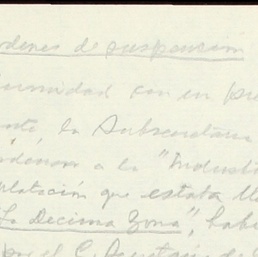 rdenes de suspensión
formidad con en pre
nte la Subsecretaria
denaron a la "Industri
ulatación que estaba lle
"La Decima Zona", habi
por el C.